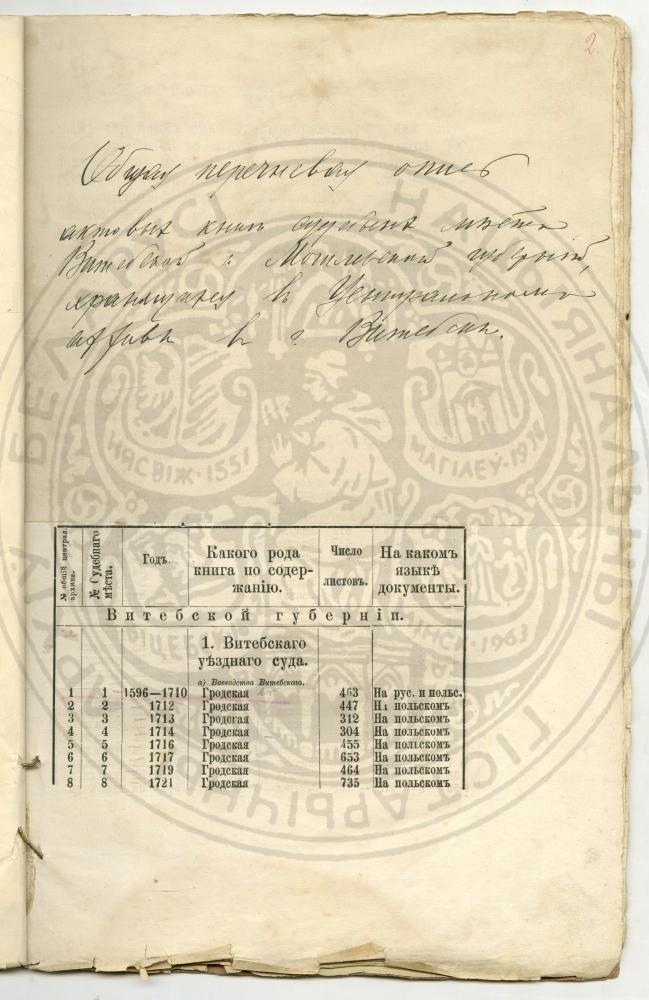 2.
Общая перечневая опись
актовых книг судебных мест
Витебской и Могилевской губерний,
хранящихся в Центральном
архиве в г. Витебске.
№ общій централ. архива. № Судебнаго мѣста. Годъ. Какого рода книга по содержанію. Число листовъ. На какомъ языкѣ документы.
Витебской губерніи.
1. Витебскаго
уѣзднаго суда.
а) Воеводства Витебскаго.
1 1 1596—1710 Гродская 463 На рус. и польс.
2 2 1712 Гродская 447 На польскомъ
3 3 1713 Гродская 312 На польскомъ
4 4 1714 Гродская 304 На польскомъ
5 5 1716 Гродская 455 На польскомъ
6 6 1717 Гродская 653 На польскомъ
7 7 1719 Гродская 464 На польскомъ
8 8 1721 Гродская 735 На польскомъ
НЯСВІЖ·1551
МАГІЛЕЎ·19